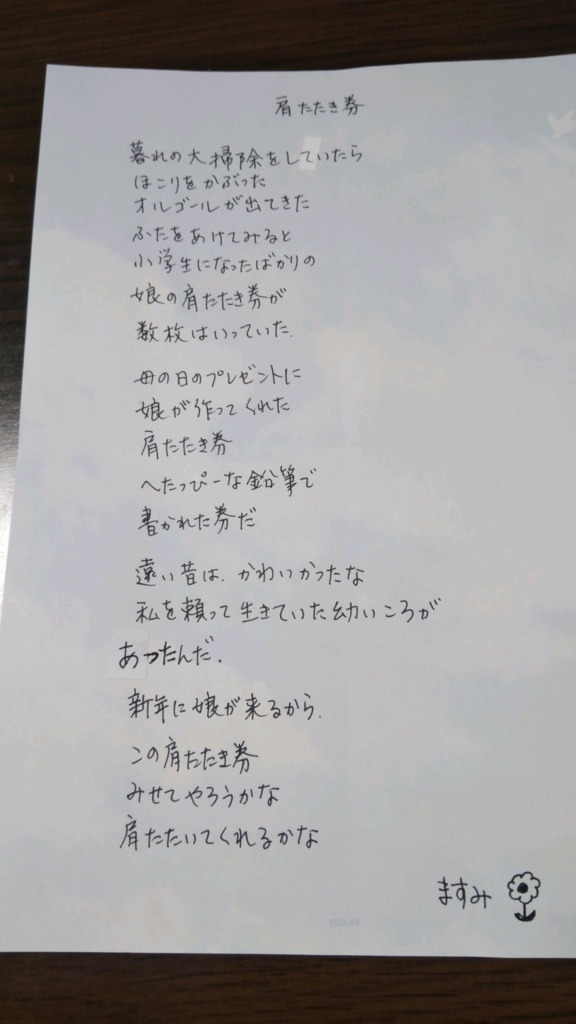 肩たたき券
暮れの大掃除をしていたら
ほこりをかぶった
オルゴールが出てきた
ふたをあけてみると
小学生になったばかりの
娘の肩たたき券が
数枚はいっていた.
母の日のプレゼントに
娘が作ってくれた
肩たたき券
へたっぴーな鉛筆で
書かれた券だ
遠い昔は、かわいかったな
私を頼って生きていた幼いころが
あったんだ.
新年に娘が来るから.
この肩たたき券
みせてやろうかな
肩たたいてくれるかな
ますみ